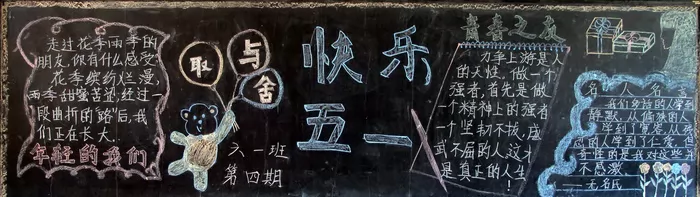 走过花季雨季的
朋友,你有什么感受
花季缤纷烂漫,
雨季甜蜜苦涩,经过一
段曲折的"路"后,我
们正在长大。
年轻的我们
取与舍
六一班
第四期
快乐
五一
青春之友
力争上游是人
的天性,做一个
强者,首先是做
一个精神上的强者
一个坚韧不拔,威
武不屈的人,这才
是真正的人生!
名人名言
我们多话的人学到
静默,从偏狭的人
学到了宽容,从
恶的人学到了仁爱
奇怪的是我对这些
不感激
——无名氏